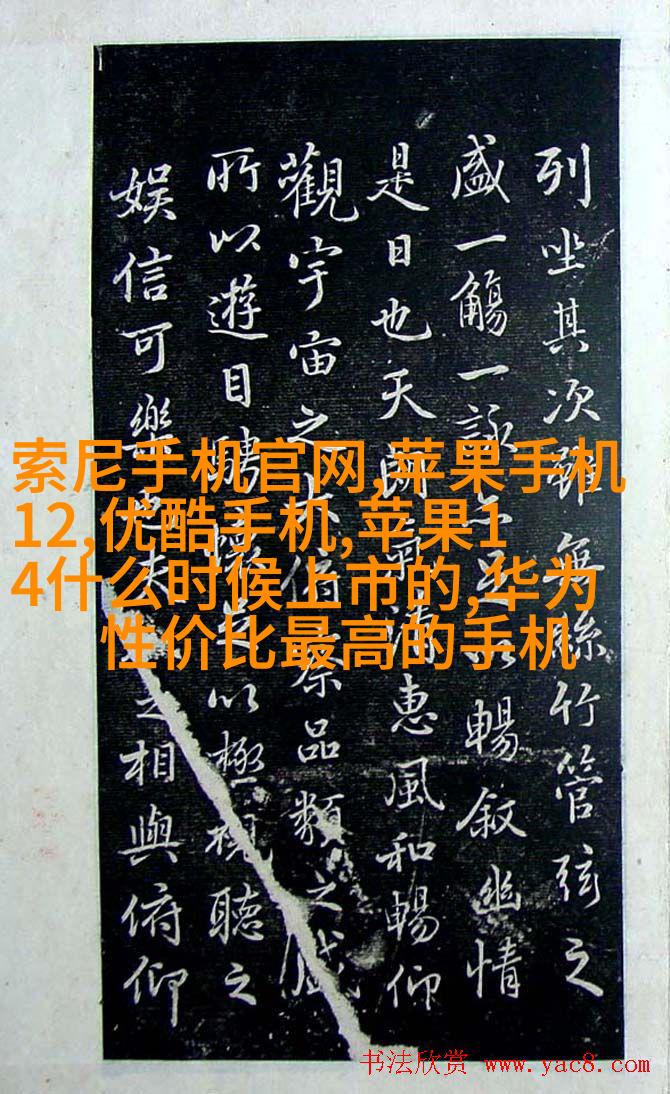 列坐其次雖無絲竹管弦之
盛一觴一詠亦足以暢叙幽情
是日也天朗氣清惠風和暢仰
觀宇宙之大俯察品類之盛
所以遊目騁懷足以極視聽之
娱信可樂也夫之相與俯仰
索尼手机官网,苹果手机
12,优酷手机,苹果1
4什么时候上市的,华为
性价比最高的手机
书法欣赏 www.yac8.com